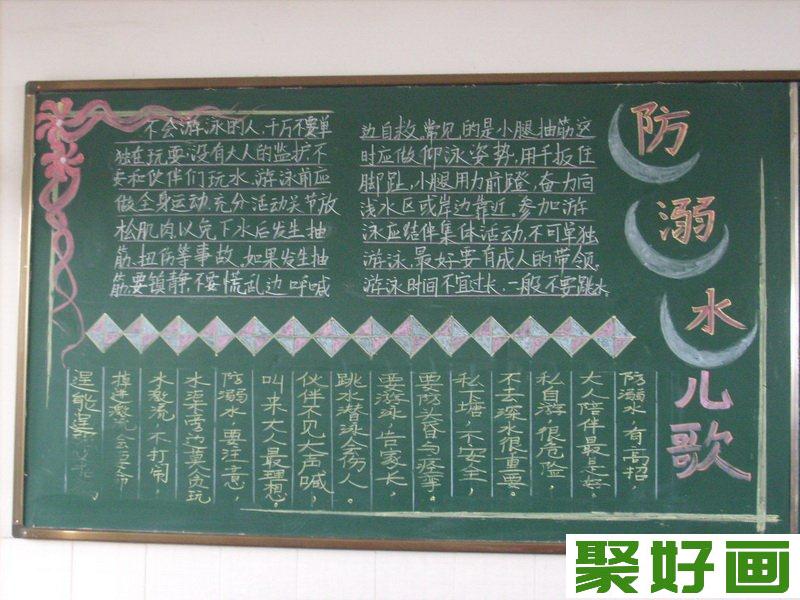 防溺水儿歌
不会游泳的人,千万不要单
独在玩耍,没有大人的监护不
要和伙伴们玩水。游泳前应
做全身运动,充分活动关节放
松肌肉以免下水后发生抽
筋、扭伤等事故。如果发生抽
筋要镇静,不要慌乱边呼喊
边自救。常见的是小腿抽筋这
时应做仰泳姿势,用手扳住
脚趾,小腿用力前蹬,奋力向
浅水区或岸边靠近。参加游
泳应结伴集体活动,不可单独
游泳,最好要有成人的带领。
游泳时间不宜过长,一般不要跳水。
防溺水,有高招,
大人陪伴最是好。
私自游,很危险,
不去深水很重要。
私下塘,不安全,
要防头昏与痉挛。
要游泳,告家长,
跳水潜泳会伤人。
伙伴不见大声喊,
叫来大人最理想。
防溺水,要注意,
水渠旁边莫贪玩
水激流,不打闹,
掉进激流会丢命
逞能
聚好画